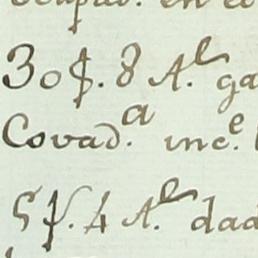 30$. 8 A.^e ga
Covad.^a inc.^e
5$. 4 A.^e dad